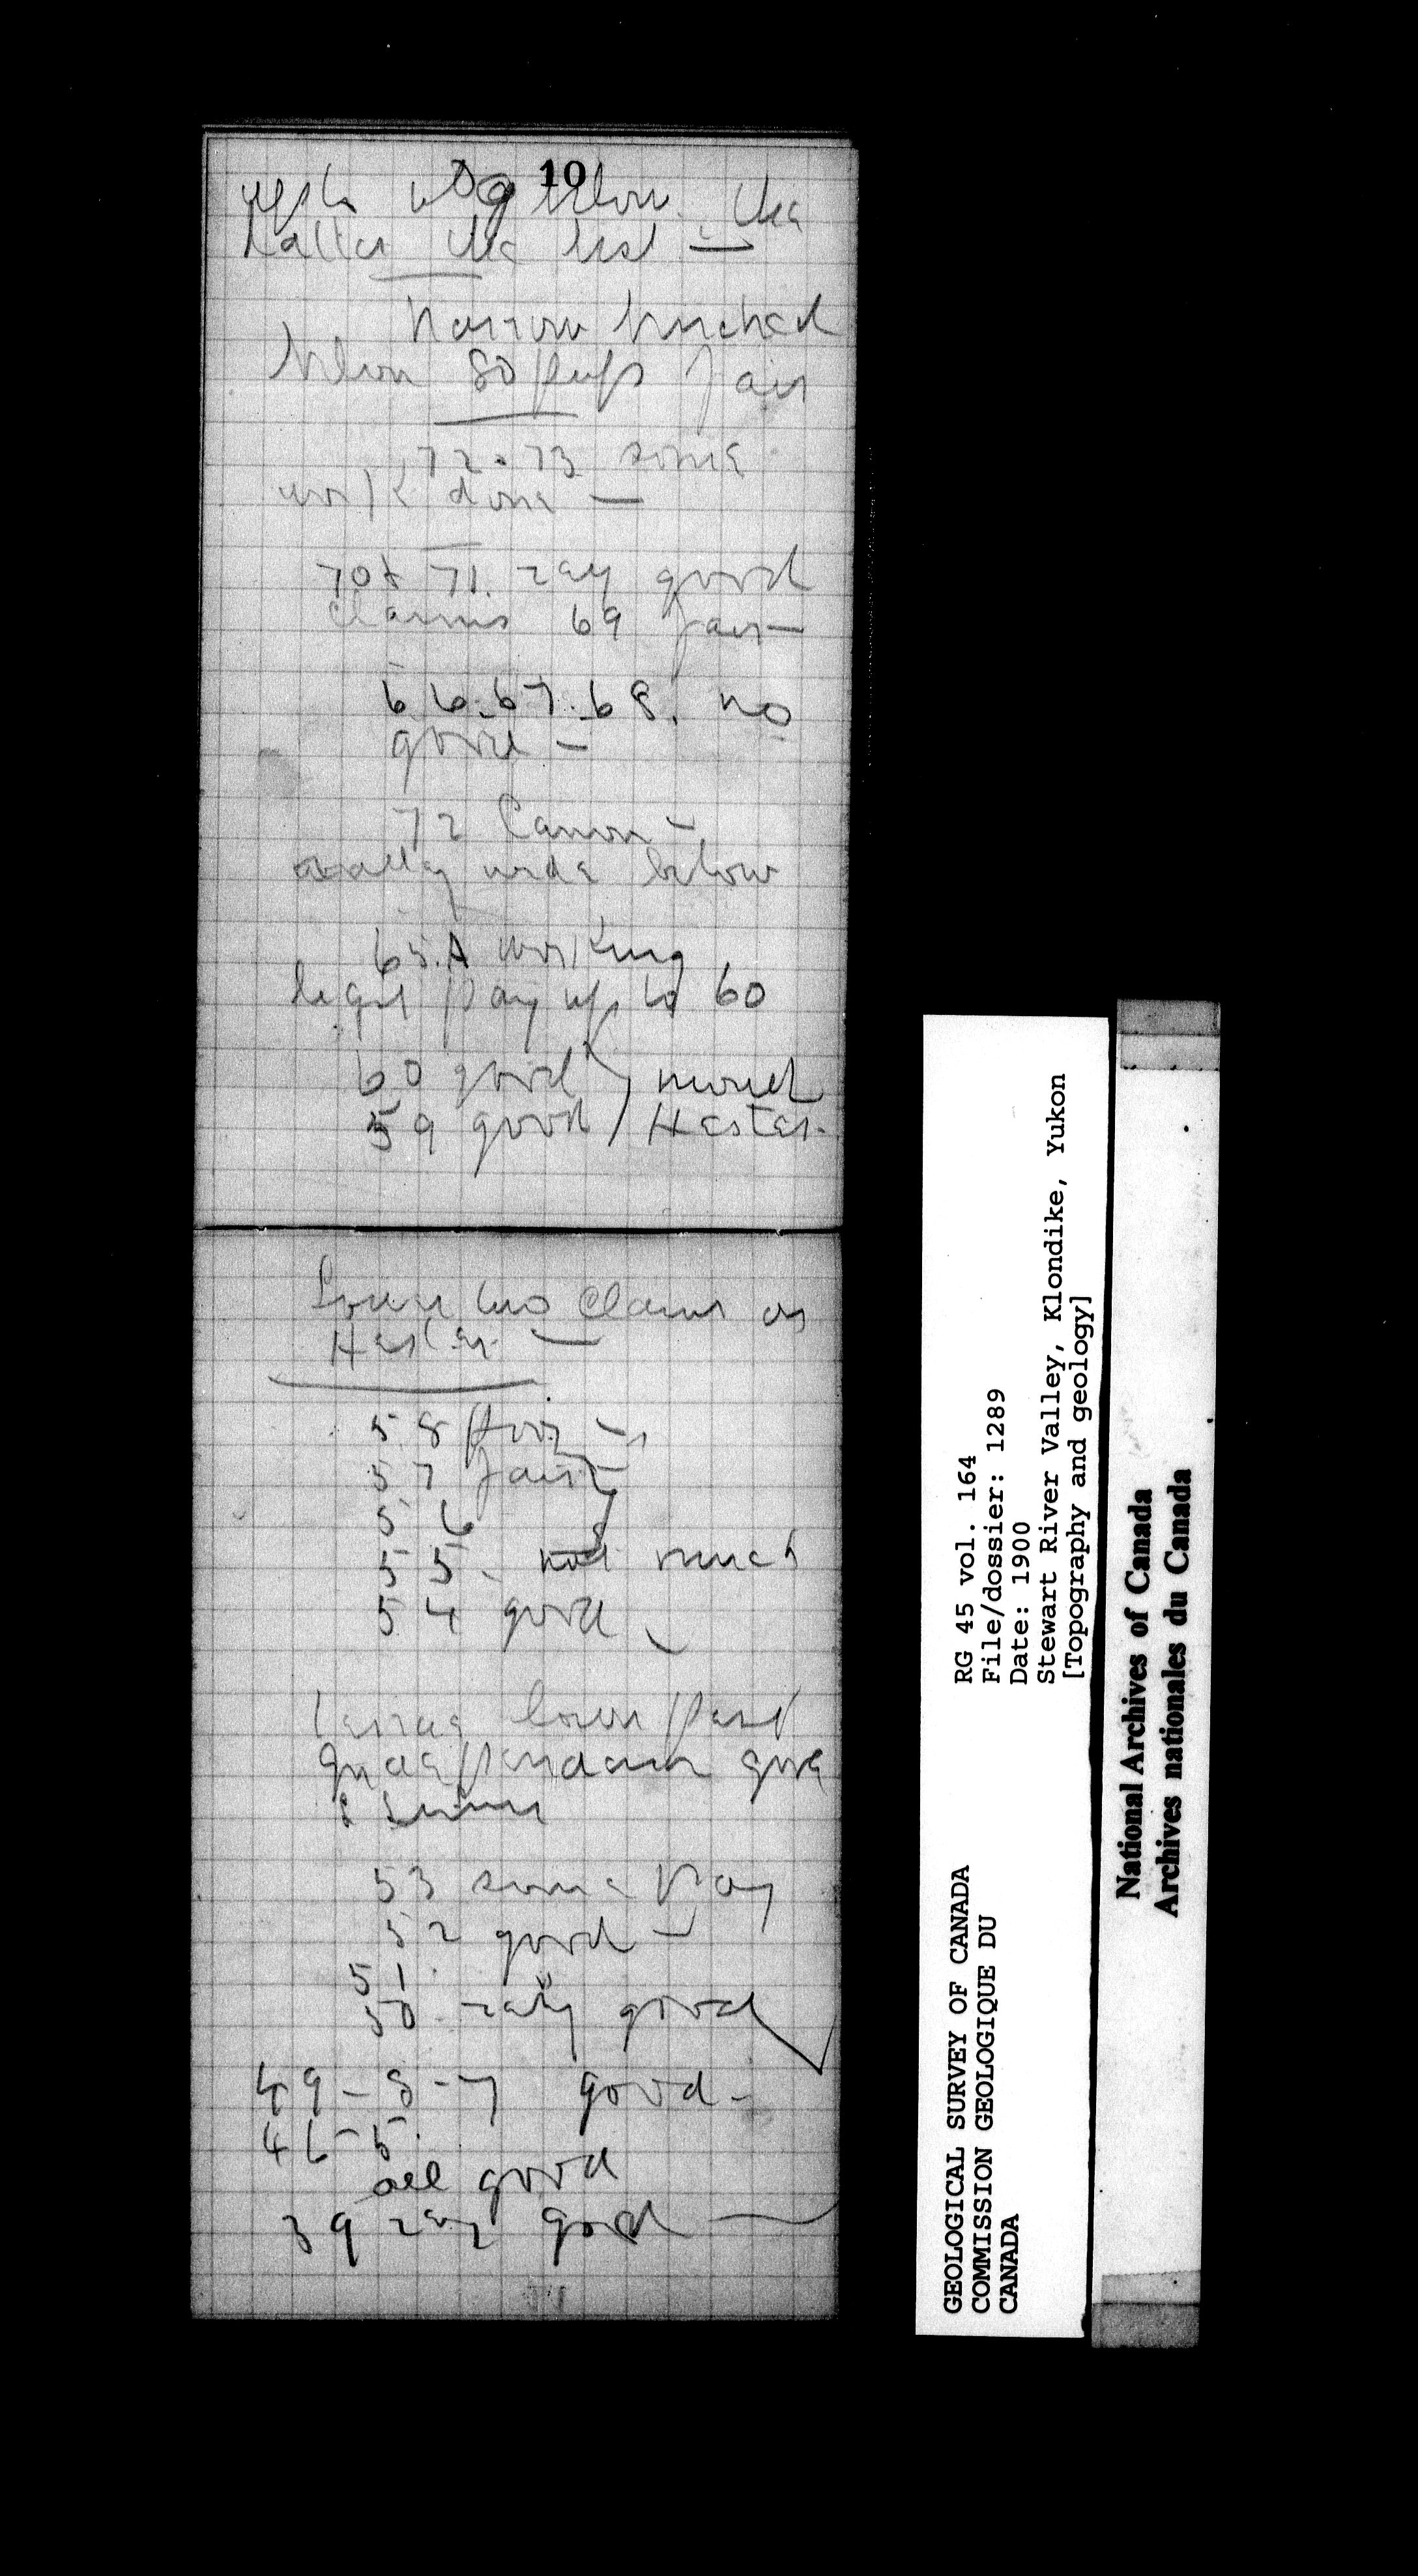 10
up to 59 below the
latter the best —
Narrow benched
below 80 pups fair
72 - 73 some
work done —
70 & 71. very good
claims 69 fair —
66. 67. 68. no
good —
72 Canon —
valley wide below
65. A working
pay up to 60
60 good } mouth
59 good } Hester.
Lower two claims on
Hester —
58 poor —
57 fair —
56
55 - not much
54 good —
lower part
Independence gone
53 some pay
52 good —
51.
50 very good
49 - 8 - 7 good -
46 - 5.
all good
39 very good —
GEOLOGICAL SURVEY OF CANADA
COMMISSION GEOLOGIQUE DU
CANADA
RG 45 vol. 164
File/dossier: 1289
Date: 1900
Stewart River Valley, Klondike, Yukon
[Topography and geology]
National Archives of Canada
Archives nationales du Canada